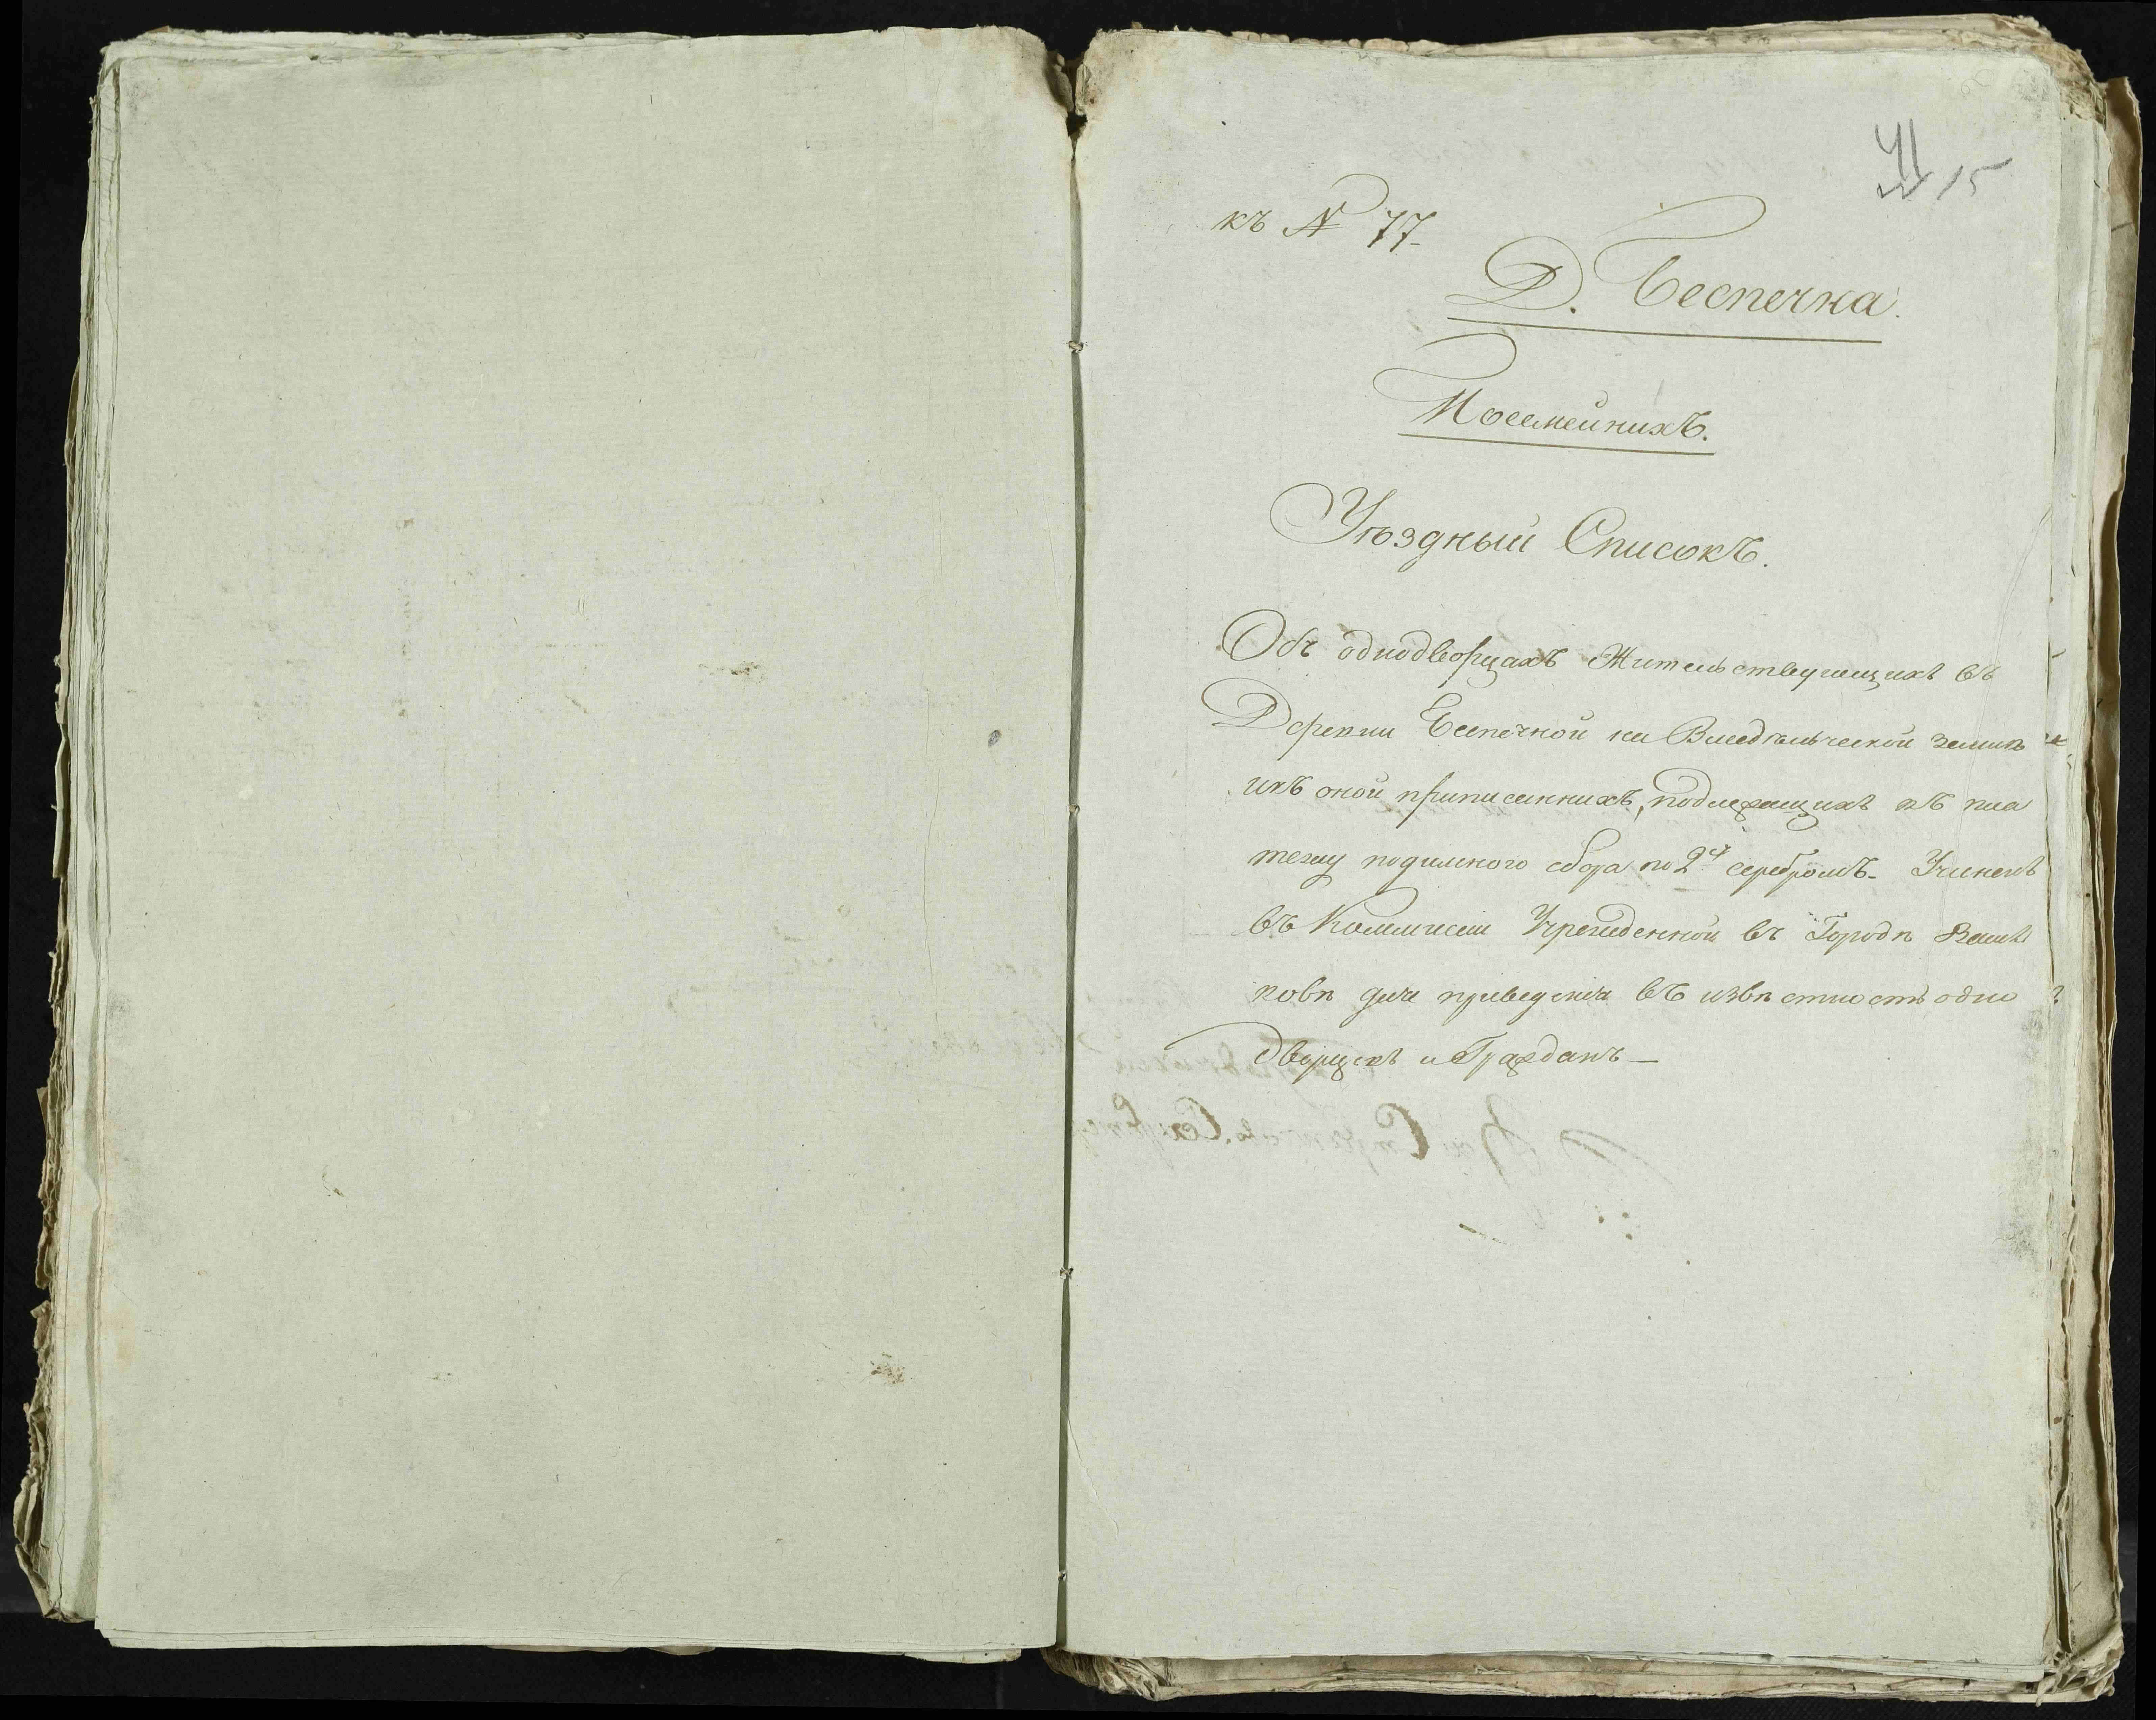 41 15
къ № 77.
Д. Беспечна.
Посемейнихъ.
Уѣздный Списокъ.
Объ однодворцахъ Жительствующихъ въ
Деревни Беспечной на Владѣльческой землѣ
икъ оной приписаннихъ, подлежащихъ къ пла
тежу подимного сбора по 2 серебромъ. Учиненъ
въ Коммисіи Учрежденной въ Городѣ Звини
ковѣ для приведенія въ извѣстность одно
дворцевъ и Гражданъ —